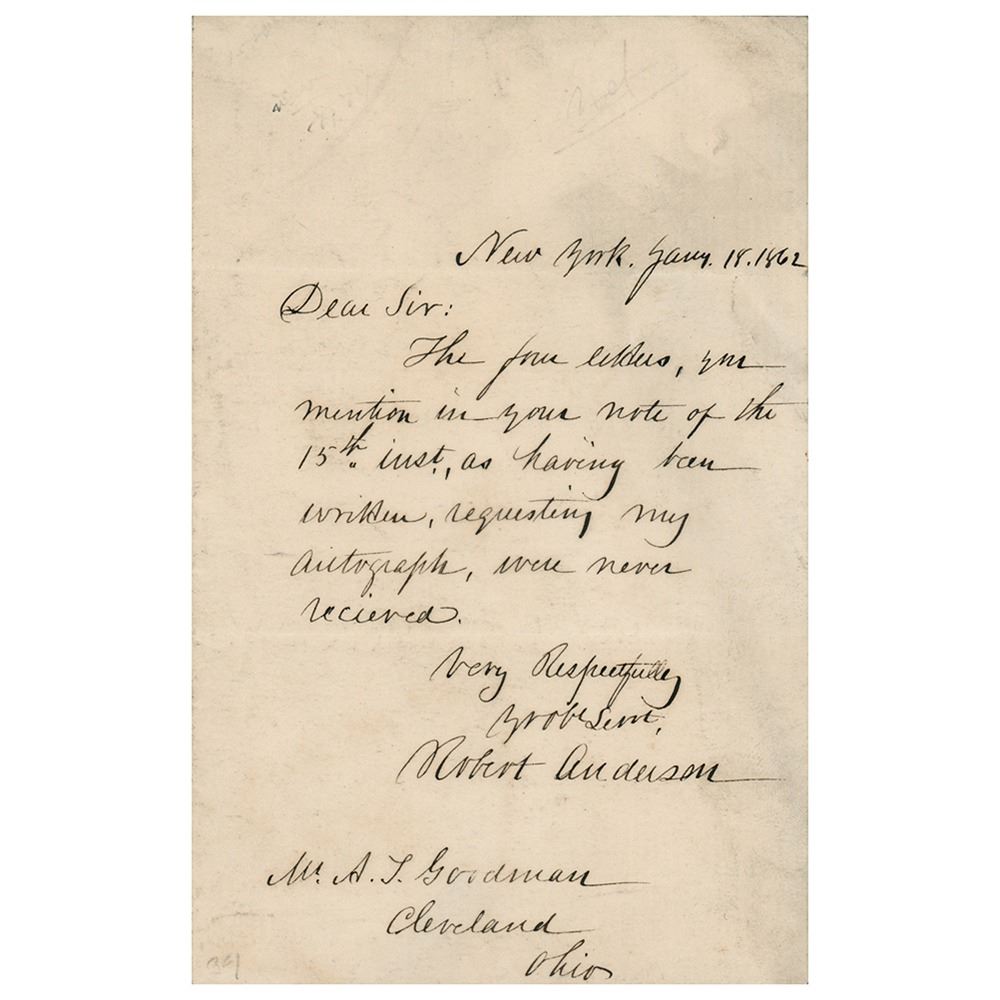 New York. Jany. 18. 1862
Dear Sir:
The four letters, you
mention in your note of the
15th. inst., as having been
written, requesting my
autograph, were never
recieved.
Very Respectfully
Yr obt Servt,
Robert Anderson
Mr. A. T. Goodman
Cleveland
Ohio